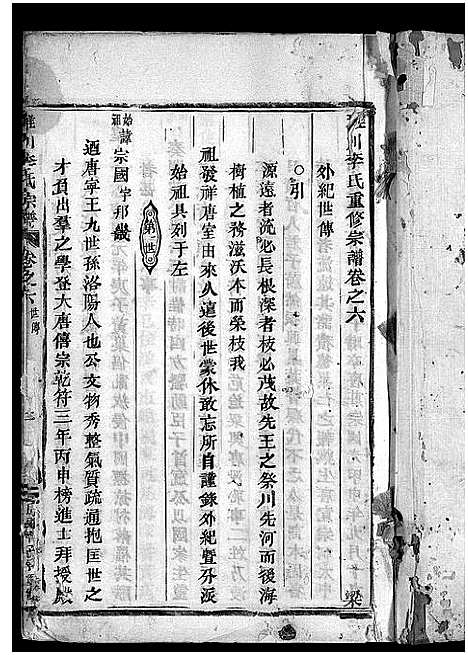 川李氏重修宗譜卷之六
外紀世傳
○引
源遠者流必長根深者枝必茂故先王之祭川先河而後海
樹植之務滋沃本而榮枝我
祖發祥唐室由來久遠後世蒙休敢忘所自謹錄外紀暨分派
始祖具列于左
第一世
始祖諱宗國字邦畿
迺唐寧王九世孫洛陽人也公文物秀整氣質疏通抱匡世之
才負出羣之學登大唐僖宗乾符三年丙申榜進士拜授
川李氏宗譜
卷之六
世傳
梁